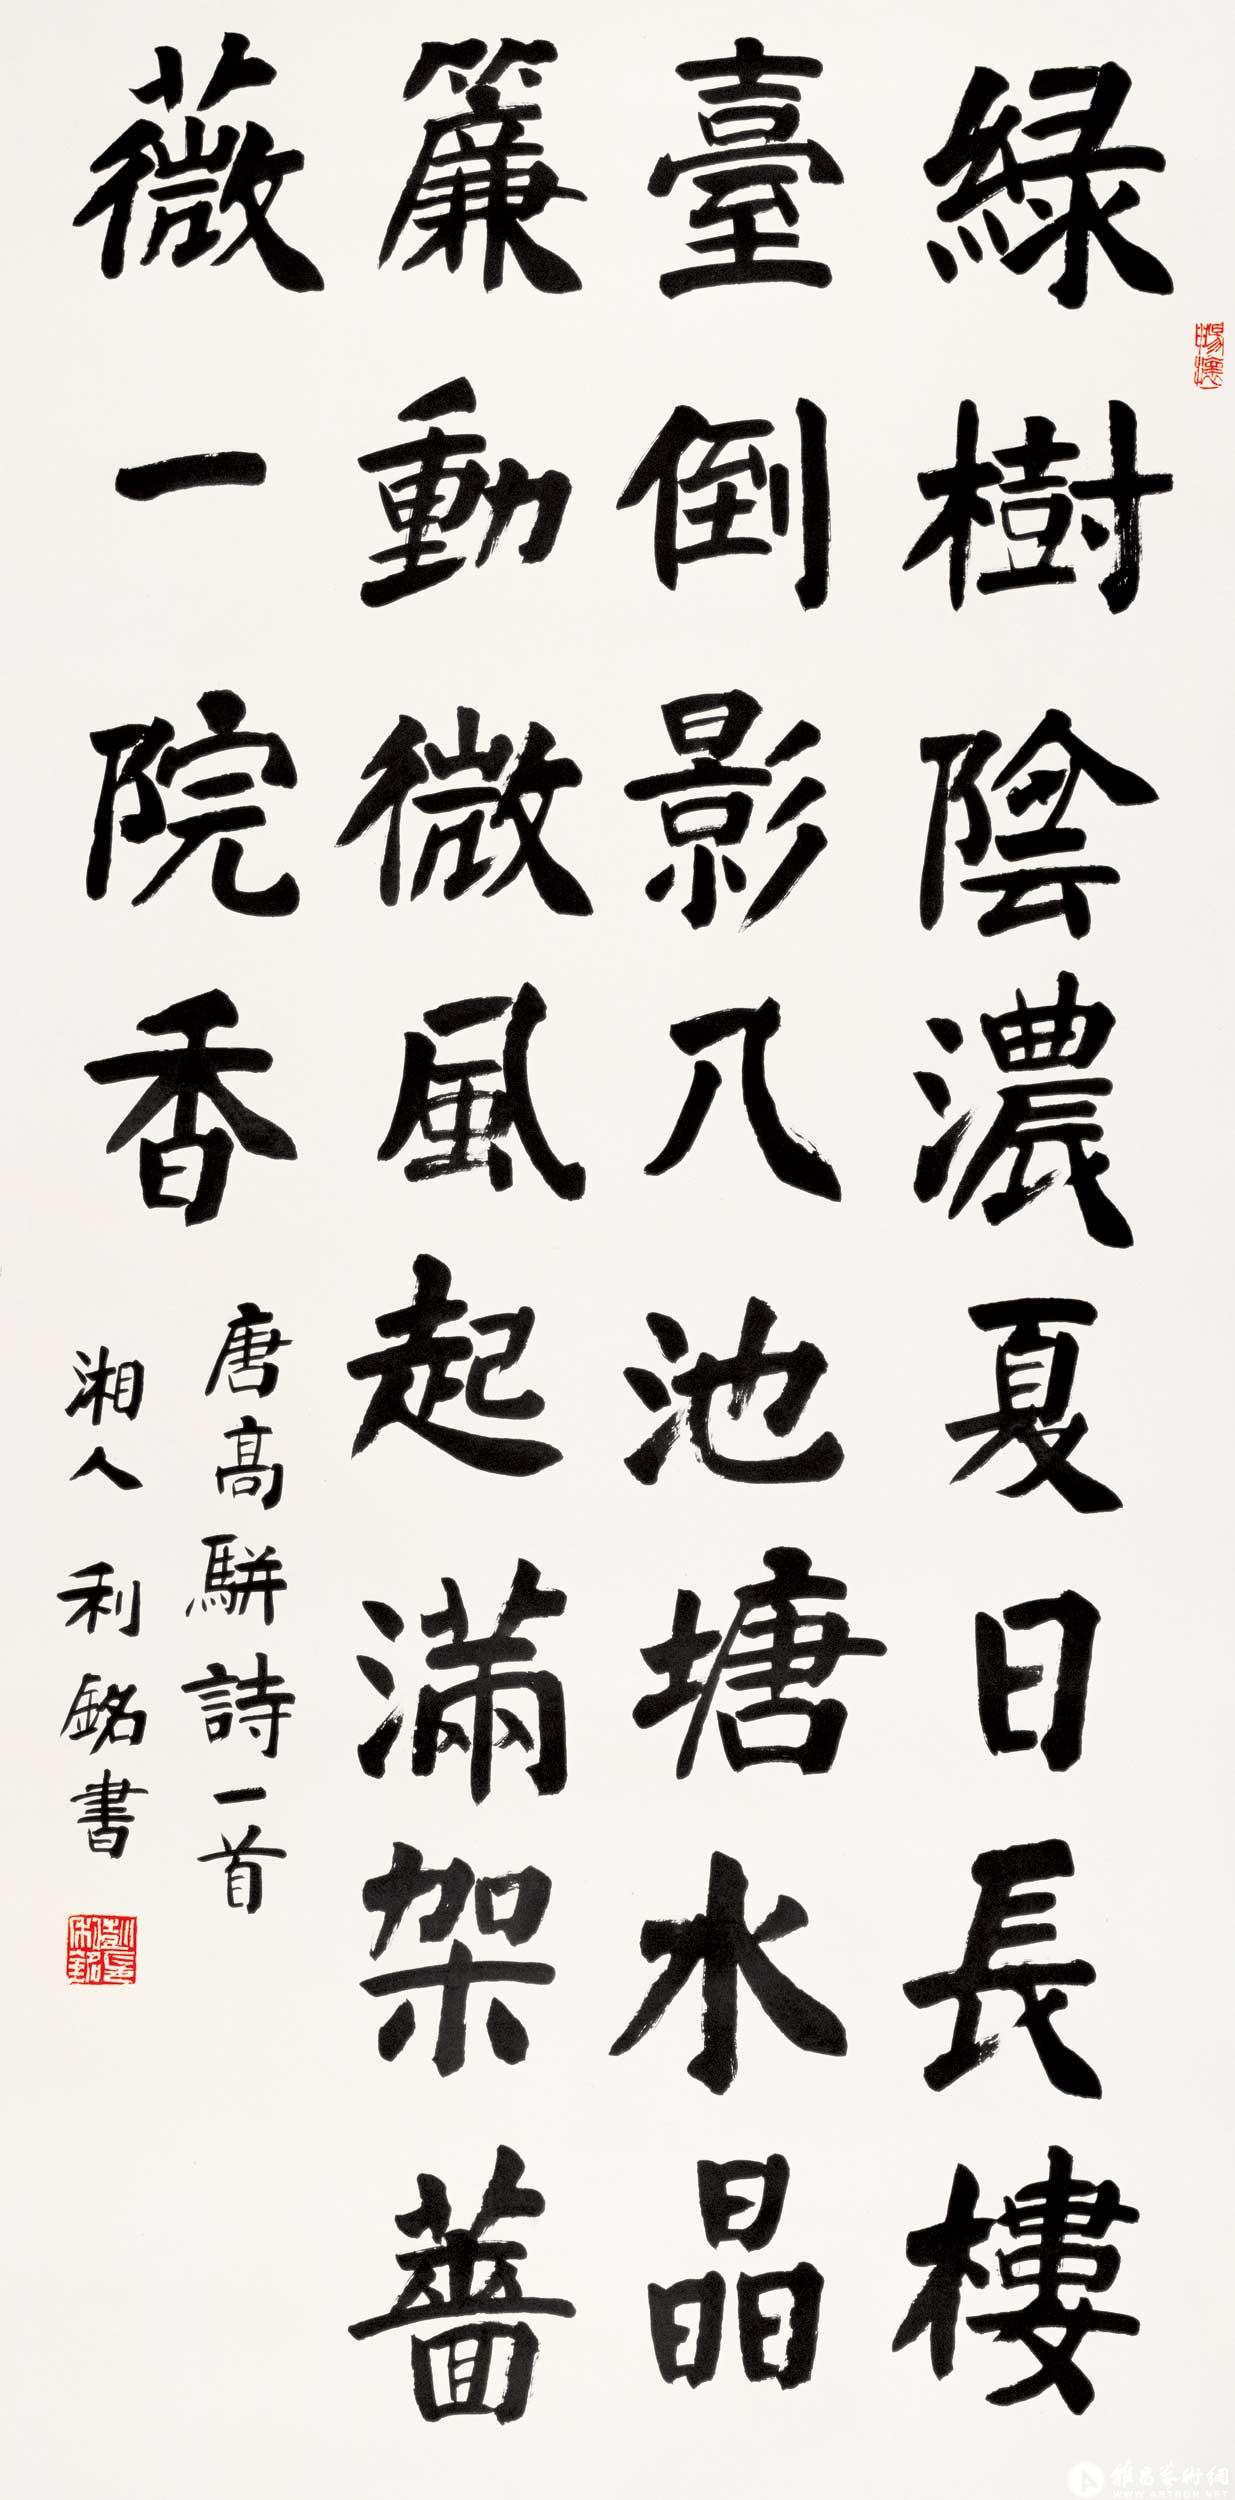 綠樹陰濃夏日長樓
臺倒影入池塘水晶
簾動微風起滿架薔
薇一院香
唐高駢詩一首
湘人利銘書
雅昌藝術網
WWW.ARTRON.NET